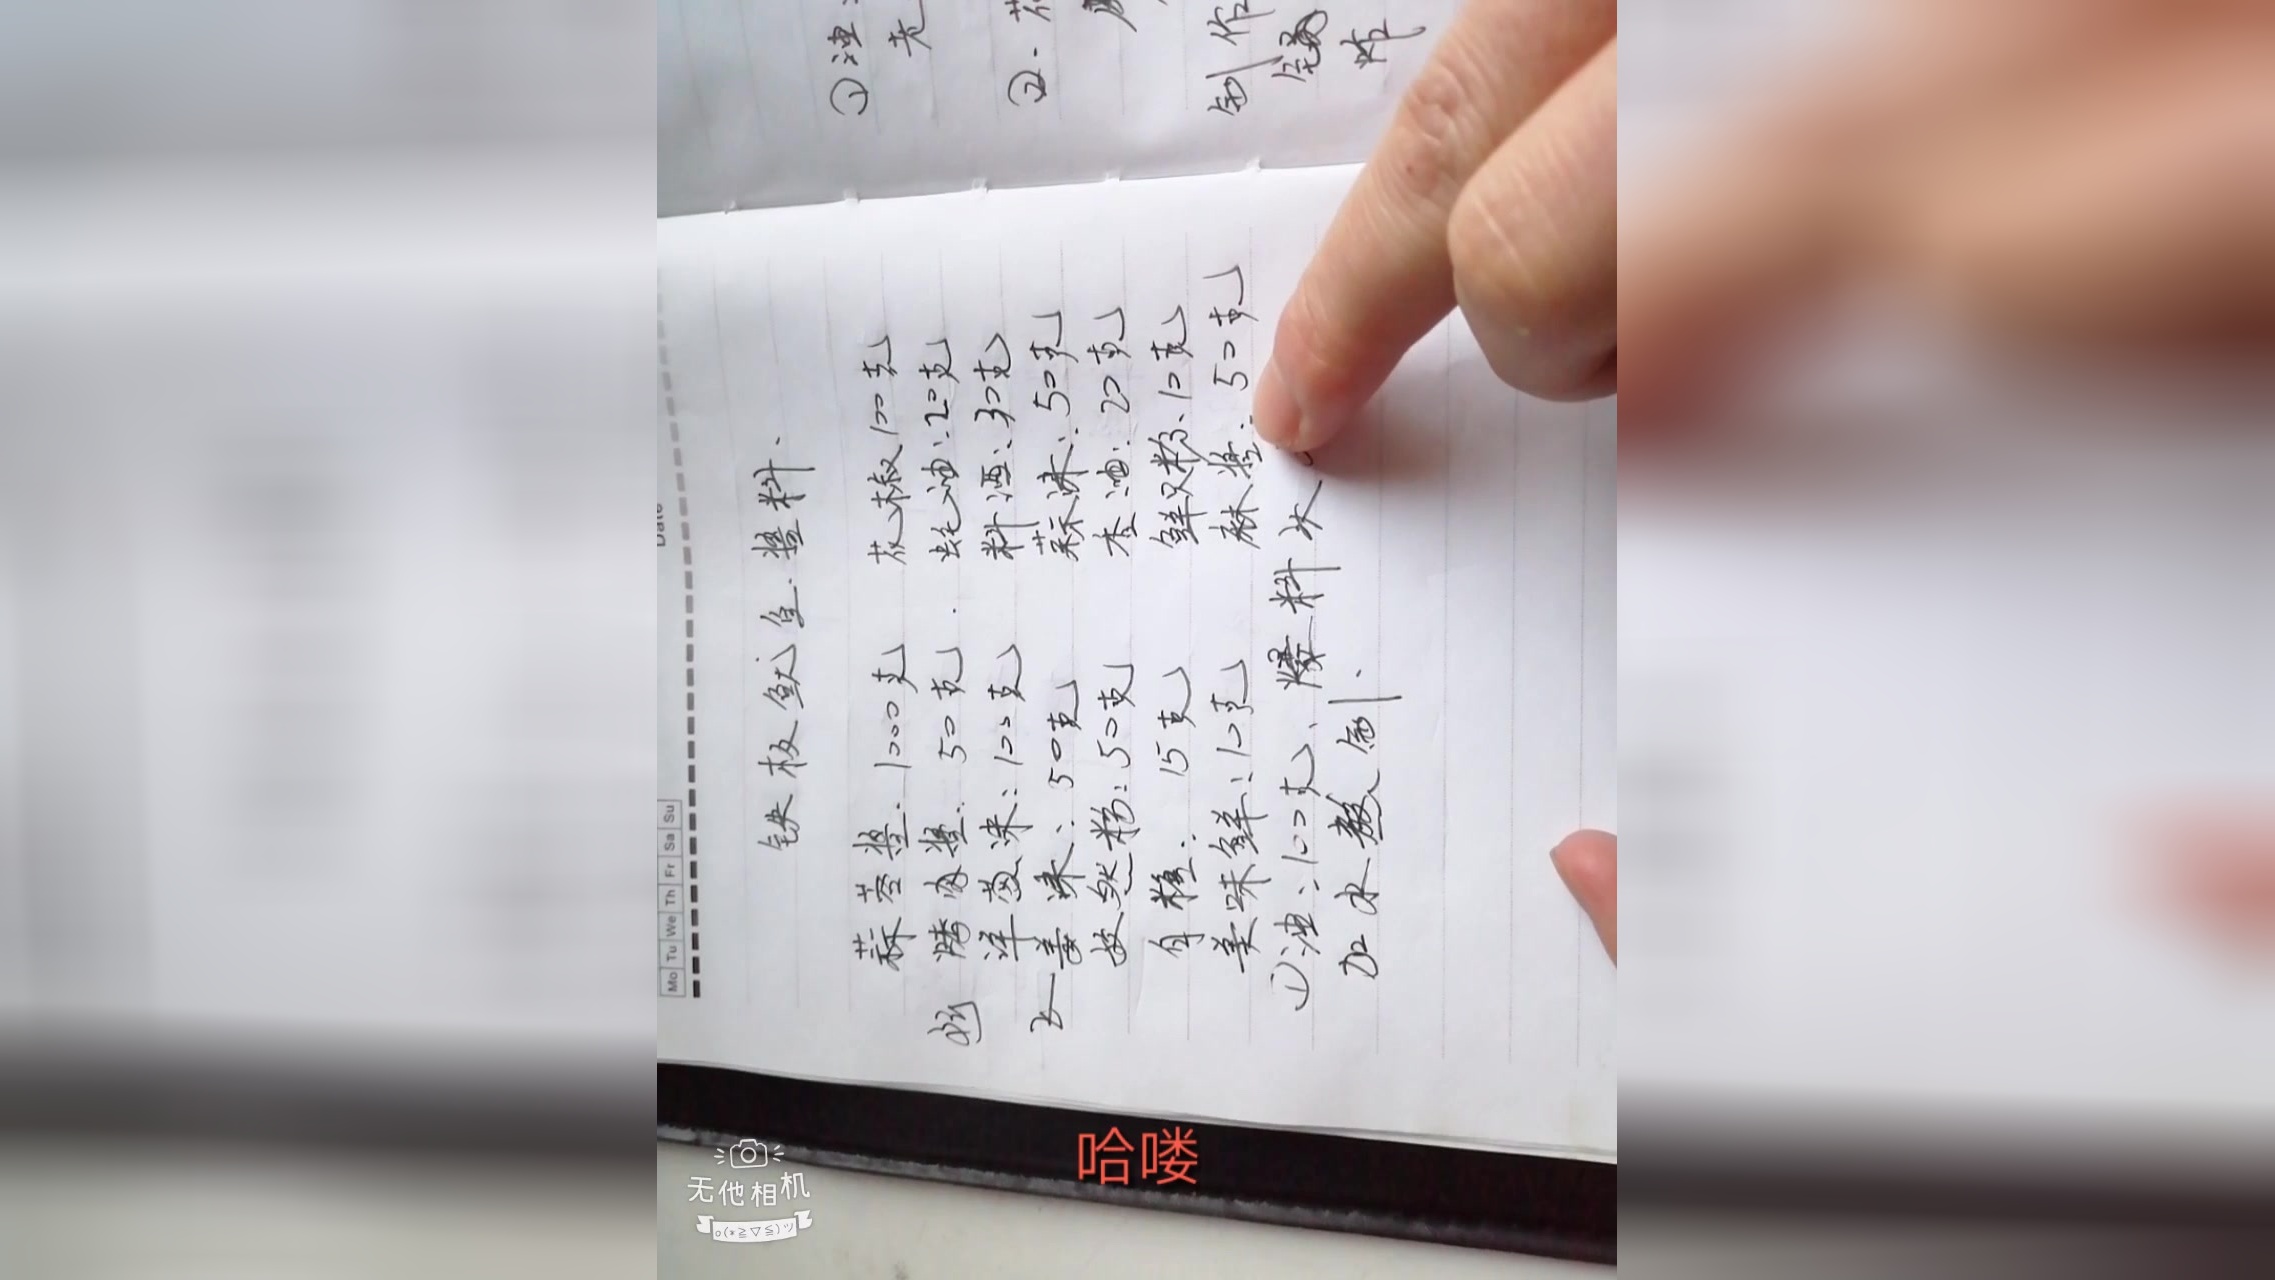 Mo Tu We Th Fr Sa Su
Date
铁板鱿鱼.酱料.
蒜蓉酱.1000克 花椒100克
50克. 蚝油:20克
洋葱沫:100克 料酒:30克
姜沫:50克 蒜沫:50克
孜然粉:50克 香油:20克
白糖:15克 鲜贝粉:10克
美味鲜:10克 麻酱:50克
①油:100克、爆料水
加水熬制.
①油
②.花
制作
哈喽
无他相机
o(*≧▽≦)ツ